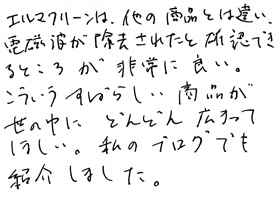 エルマクリーンは、他の商品とは違い、
電磁波が除去されたと確認でき
るところが非常に良い。
こういうすばらしい商品が
世の中にどんどん広まって
ほしい。私のブログでも
紹介しました。